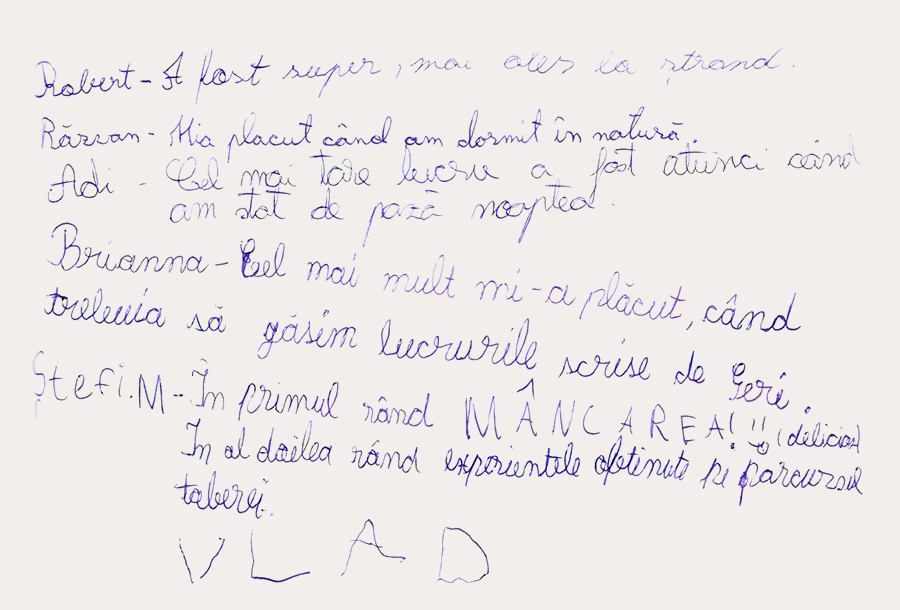 Robert - A fost super, mai ales la ștrand.
Răzvan - Mia placut când am dormit în natură.
Adi - Cel mai tare lucru a fost atunci când
am stat de pază noaptea.
Brianna - Cel mai mult mi-a plăcut, când
trebuia să găsim lucrurile scrise de Geri.
Ștefi.M - În primul rând MÂNCAREA! (delicios)
În al doilea rând experientele obtinute pe parcursul
taberei.
VLAD